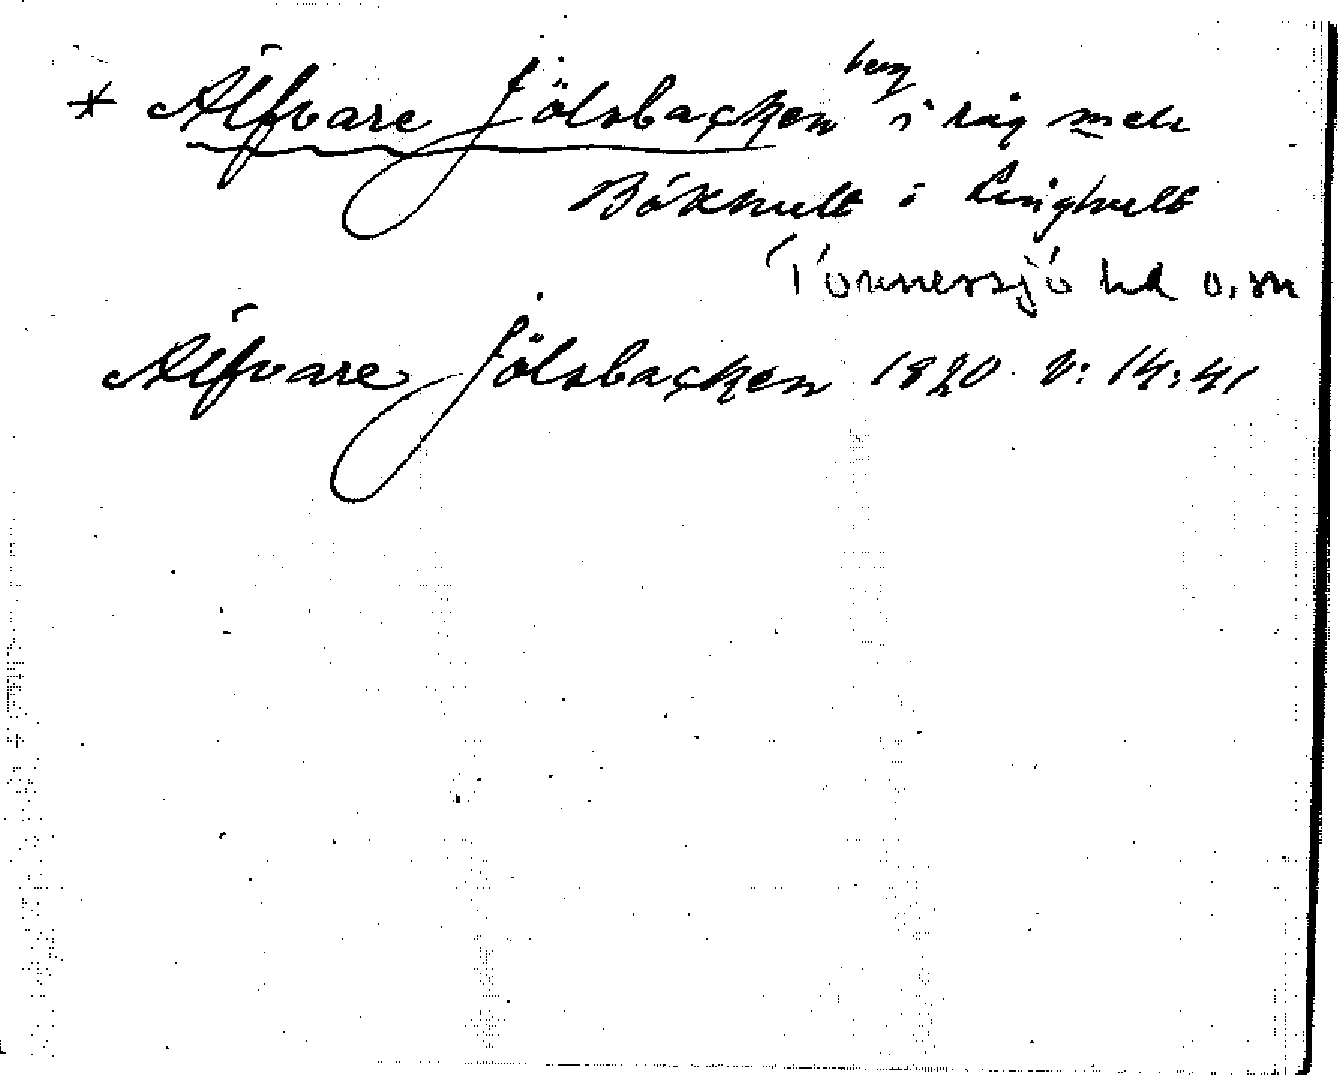 * Älfvare Jölsbacken berg i råg med
Bökhult i Linghult
Tönnersjö hd o. sn
Älfvare Jölsbacken 1820. V: 14: 41